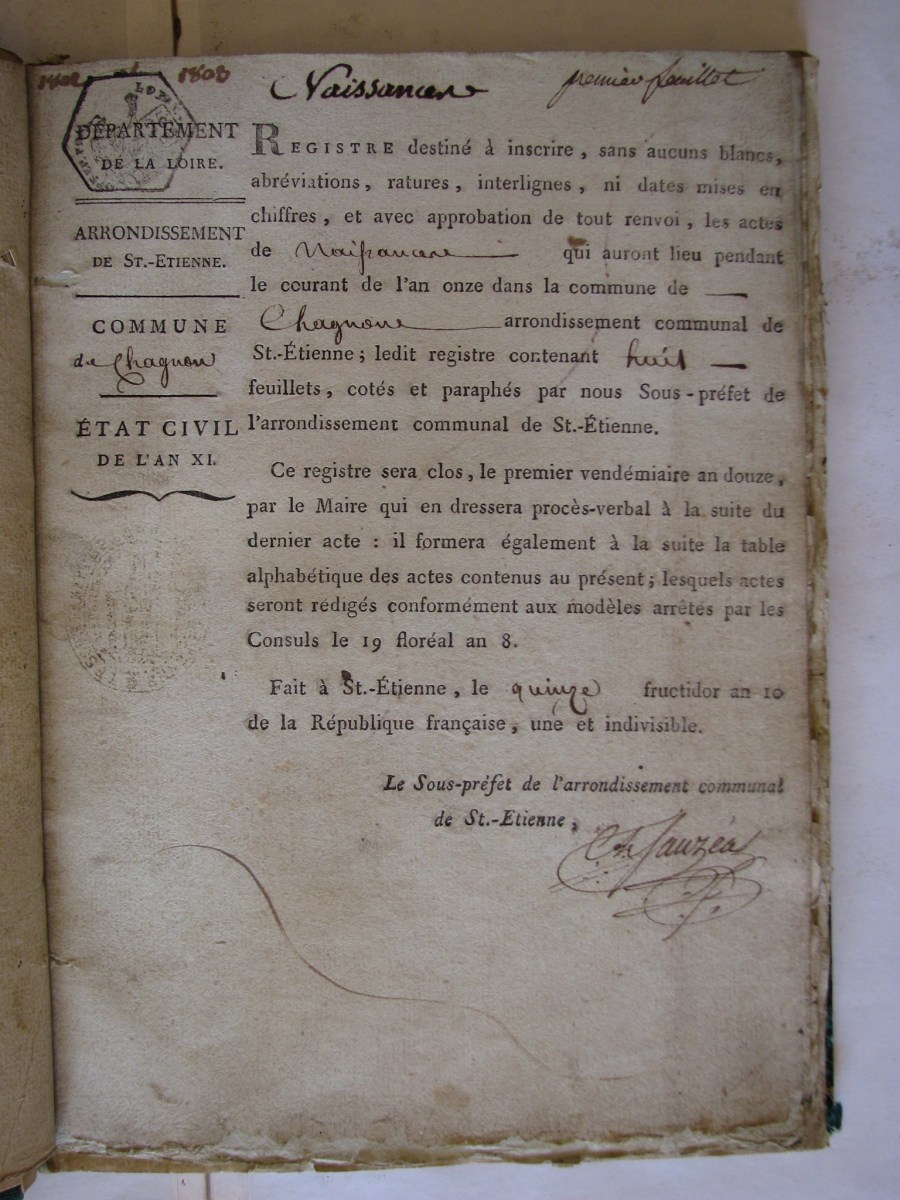 1802 et 1803
Naissances
premier feuillet
DÉPARTEMENT
DE LA LOIRE.
ARRONDISSEMENT
DE ST.-ETIENNE.
COMMUNE
de Chagnon
ÉTAT CIVIL
DE L'AN XI.
REGISTRE destiné à inscrire, sans aucuns blancs,
abréviations, ratures, interlignes, ni dates mises en
chiffres, et avec approbation de tout renvoi, les actes
de Naissances qui auront lieu pendant
le courant de l'an onze dans la commune de
Chagnon arrondissement communal de
St.-Étienne; ledit registre contenant huit
feuillets, cotés et paraphés par nous Sous-préfet de
l'arrondissement communal de St.-Étienne.
Ce registre sera clos, le premier vendémiaire an douze,
par le Maire qui en dressera procès-verbal à la suite du
dernier acte : il formera également à la suite la table
alphabétique des actes contenus au présent; lesquels actes
seront rédigés conformément aux modèles arrêtés par les
Consuls le 19 floréal an 8.
Fait à St.-Étienne, le quinze fructidor an 10
de la République française, une et indivisible.
Le Sous-préfet de l'arrondissement communal
de St.-Etienne,
Sauzéa